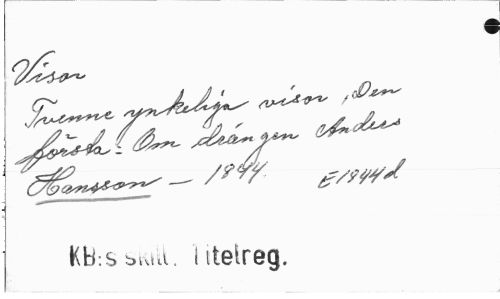 Visor
Tvenne ynkeliga visor, Den
första: Om drängen Anders
Hansson — 1844. E1844d
KB:s skill. Titelreg.